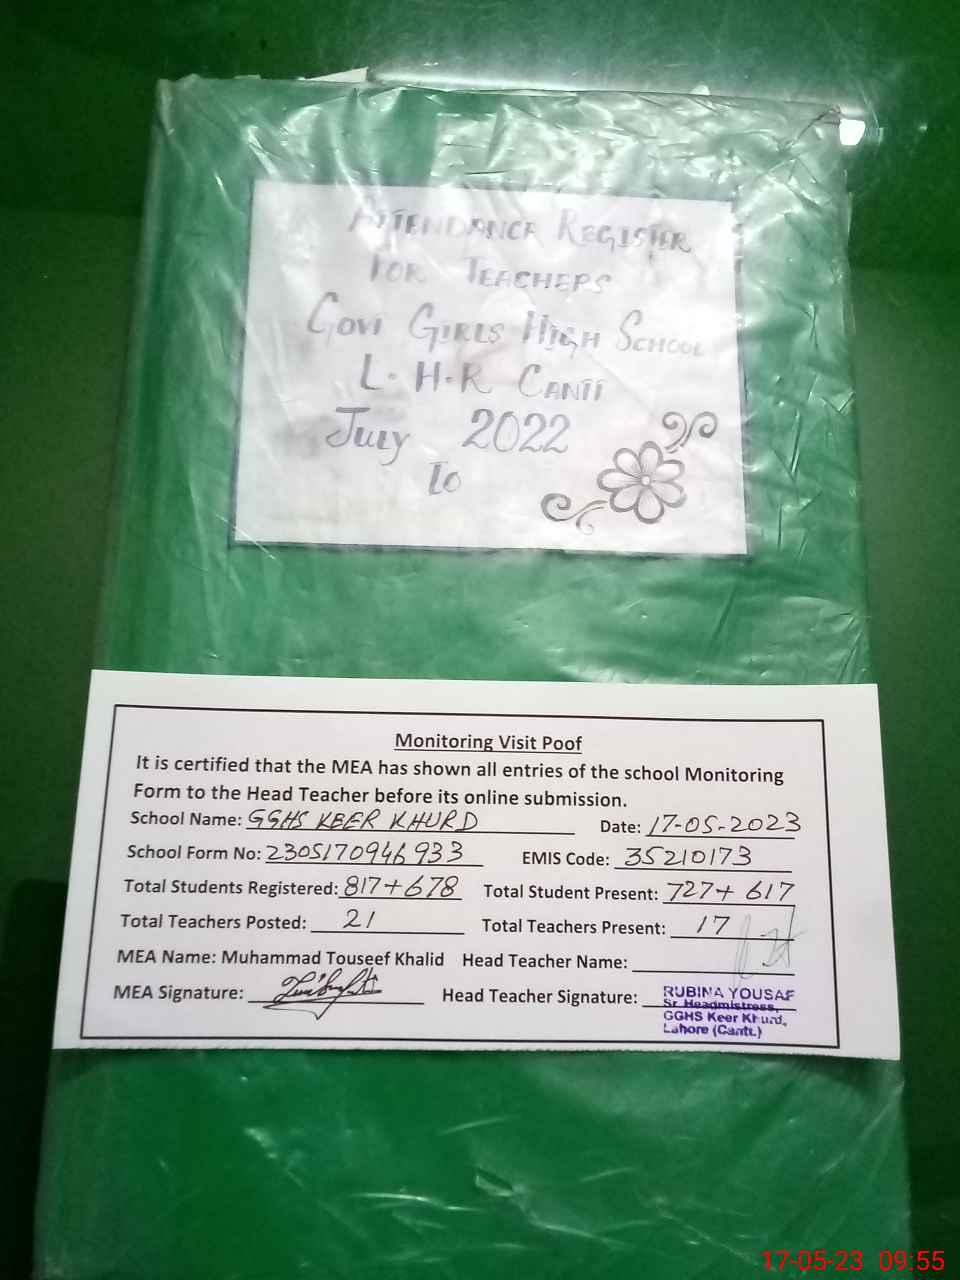 ATTENDANCE REGISTER
FOR TEACHERS
GOVT GIRLS HIGH SCHOOL
L.H.R CANTT
July 2022
To
Monitoring Visit Poof
It is certified that the MEA has shown all entries of the school Monitoring
Form to the Head Teacher before its online submission.
School Name: GGHS KEER KHURD Date: 17-05-2023
School Form No: 2305170946933 EMIS Code: 35210173
Total Students Registered: 817+678 Total Student Present: 727+617
Total Teachers Posted: 21 Total Teachers Present: 17
MEA Name: Muhammad Touseef Khalid Head Teacher Name:
MEA Signature: Head Teacher Signature:
RUBINA YOUSAF
Sr. Headmistress,
GGHS Keer Khurd,
Lahore (Cantt.)
17-05-23 09:55